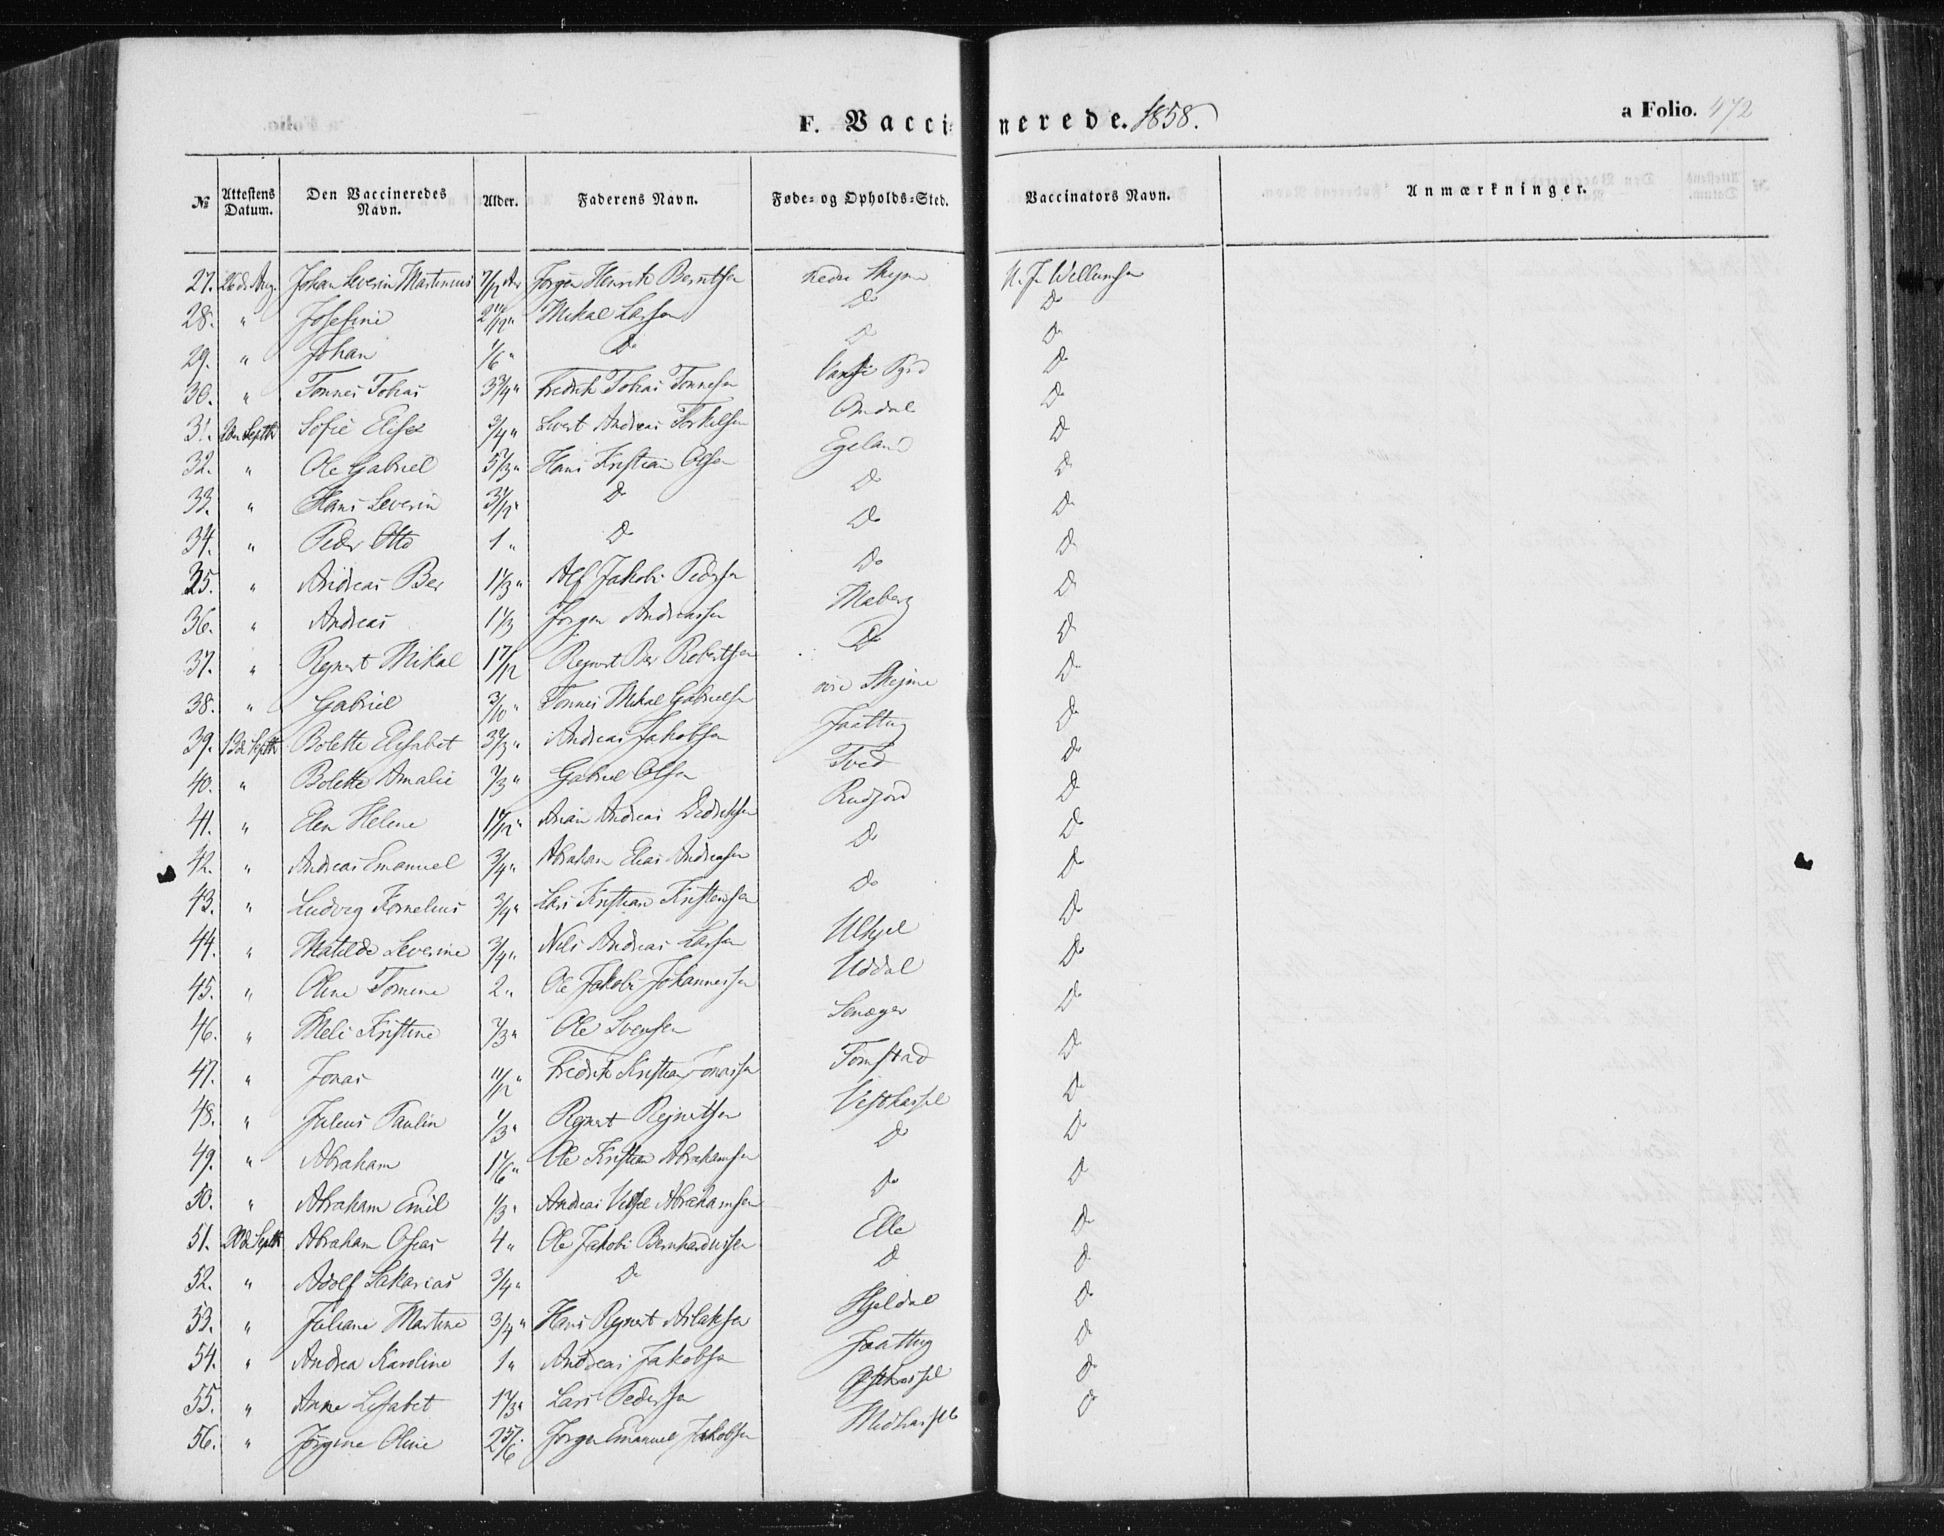 F. Vaccinerede. 1858.
a Folio. 472
№ Attestens Datum. Den Vaccineredes Navn. Alder. Faderens Navn. Føde- og Opholds-Sted. Vaccinators Navn. Anmærkninger.
27. 26de Aug. Johan Severin Martinius 7/12 Aar Jørgen Henrik Berntsen nedre N. J. Willumsen
28. " Josefine Mikal Larsen Do Do
29. " Johan 1/6 " Do Do Do
30. " Tønnes Tobias 3 3/4 " Fredrik Tobias Tønnesen Do
31. Septbr Sofie Elise 3/4 " Andreas Torkelsen Omdal Do
32. " Ole Gabriel Hans Kristian Olsen Egeland Do
33. " Hans Severin Do Do Do
34. " Peder Otto 1 " Do Do Do
35. " Andreas Ber 1 1/3 " Alf Jakob Pedersen Do Do
36. " Andreas 1 1/3 Jørgen Andreassen Maberg Do
37. " Regnert Mikal 1 7/12 Regnert Ber Robertsen Do Do
38. " Gabriel 3/10 " Tønnes Mikal Gabrielsen Do
39. 13de Septbr Bolette Elisabet 3 2/3 " Andreas Jakobsen Jaattug Do
40. " Bolette Amalie Gabriel Olsen Tved Do
41. " Elen Helene Arian Andreas Didriksen Rudjord Do
42. " Andreas Emanuel 3/4 " Abraham Elias Andreasen Do Do
43. " Ludvig Kornelius 3/4 " Lars Kristian Kristensen Do Do
44. " Matilde Severine 3/4 " Nils Andreas Larsen Ulhjel Do
45. " Oline Tomine 2 " Ole Jakob Johannessen Uddal Do
46. " Meli Kristine Ole Svensen Do
47. " Jonas 11/12 " Fredrik Kristian Jonassen Tomstad Do
48. " Julius Paulin 1/3 " Regnert Rejnertsen Vesthassel Do
49. " Abraham 1 1/6 " Ole Kristian Abrahamsen Do Do
50. " Abraham Emil 1/3 " Andreas Abrahamsen Do Do
51. 20de Septbr Abraham Oseas 4 " Ole Jakob Bernhardussen Elle Do
52. " Adolf Sakarias 3/4 " Do Do Do
53. " Juliane Martine 3/4 " Hans Regnert Aslaksen Hjeldal Do
54. " Andrea Karoline 1 " Andreas Jakobsen Jaattug Do
55. " Anne Lisabet 1 1/3 " Lars Pedersen Østhassel Do
56. " Jørgine Oline 2 5/6 " Jørgen Emanuel Jakobsen Midhassel Do